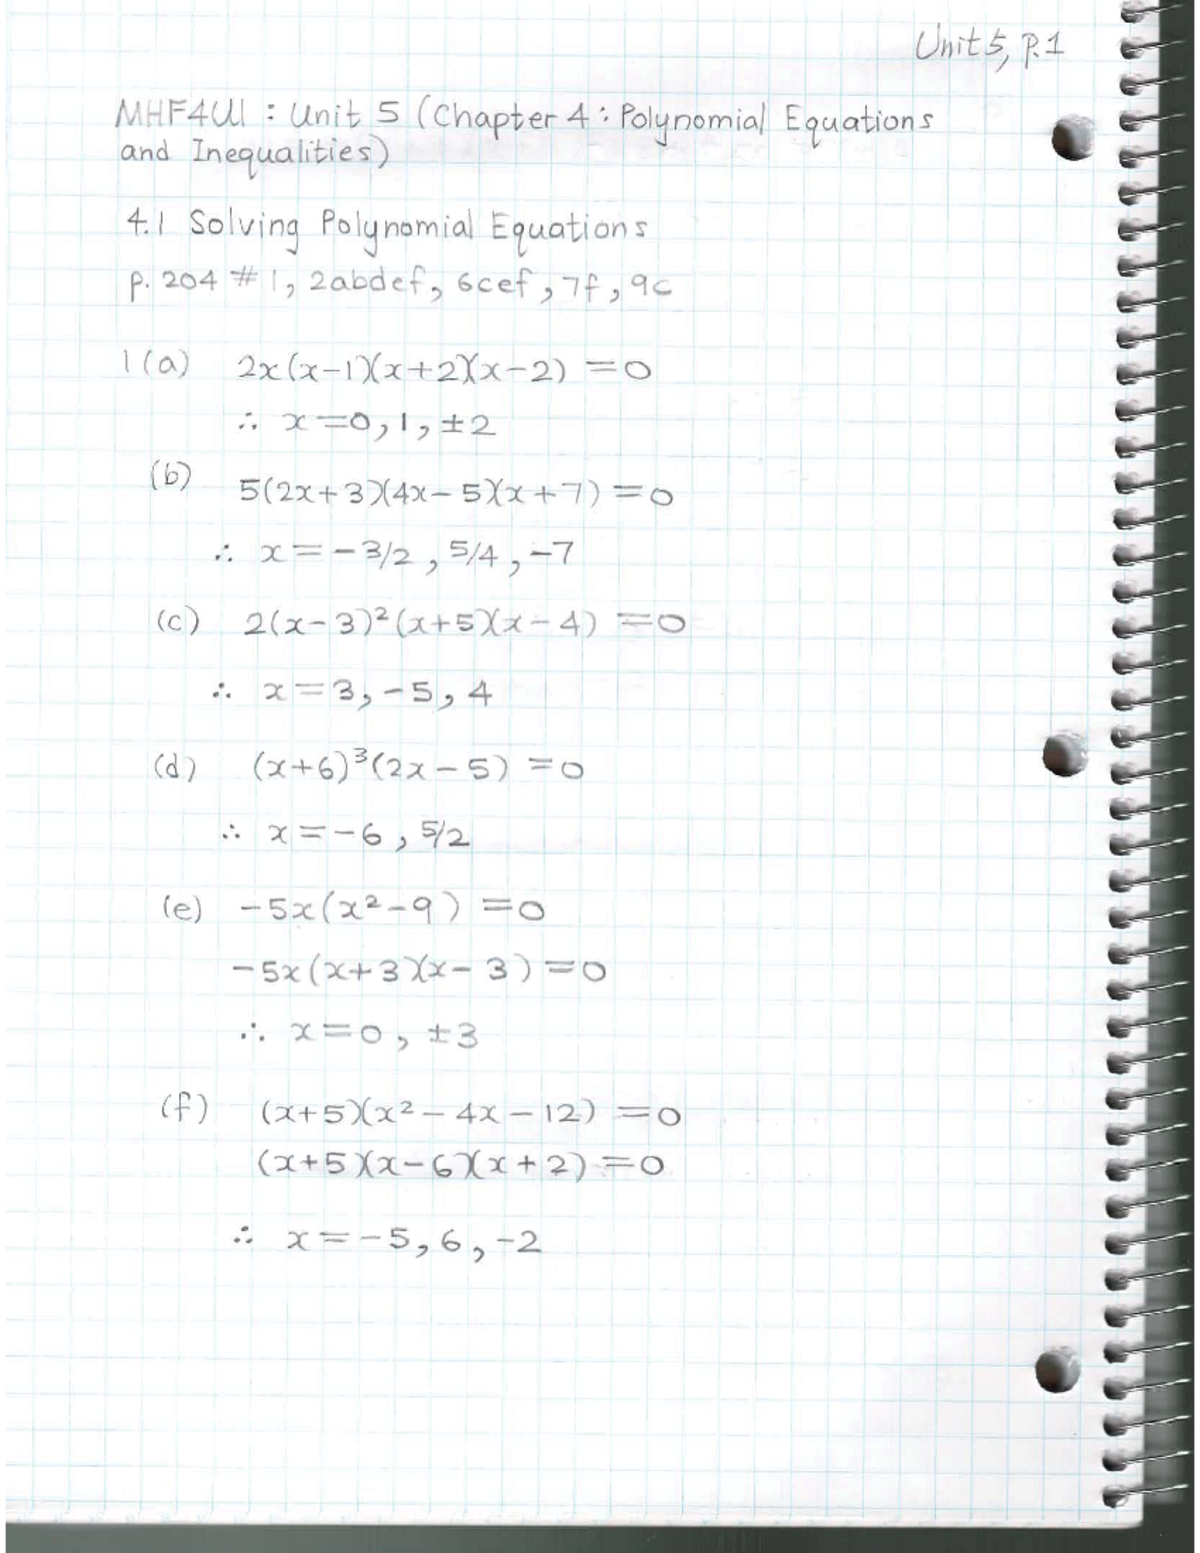 Unit 5, P.1
MHF4U1 : Unit 5 (Chapter 4 : Polynomial Equations
and Inequalities)
4.1 Solving Polynomial Equations
p. 204 # 1, 2abdef, 6cef, 7f, 9c
1(a) 2x(x-1)(x+2)(x-2) = 0
∴ x = 0, 1, ±2
(b) 5(2x+3)(4x-5)(x+7) = 0
∴ x = -3/2, 5/4, -7
(c) 2(x-3)²(x+5)(x-4) = 0
∴ x = 3, -5, 4
(d) (x+6)³(2x-5) = 0
∴ x = -6, 5/2
(e) -5x(x²-9) = 0
-5x(x+3)(x-3) = 0
∴ x = 0, ±3
(f) (x+5)(x²-4x-12) = 0
(x+5)(x-6)(x+2) = 0
∴ x = -5, 6, -2